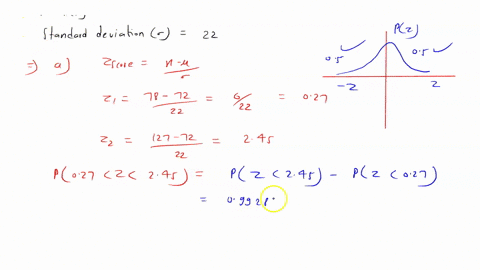 Standard deviation (σ) = 22
P(z)
0.5 0.5
-z z
⇒ a) Zscore = x-μ/σ
z₁ = 78-72/22 = 6/22 = 0.27
z₂ = 127-72/22 = 2.45
P(0.27 < z < 2.45) = P(Z < 2.45) - P(Z < 0.27)
= 0.992